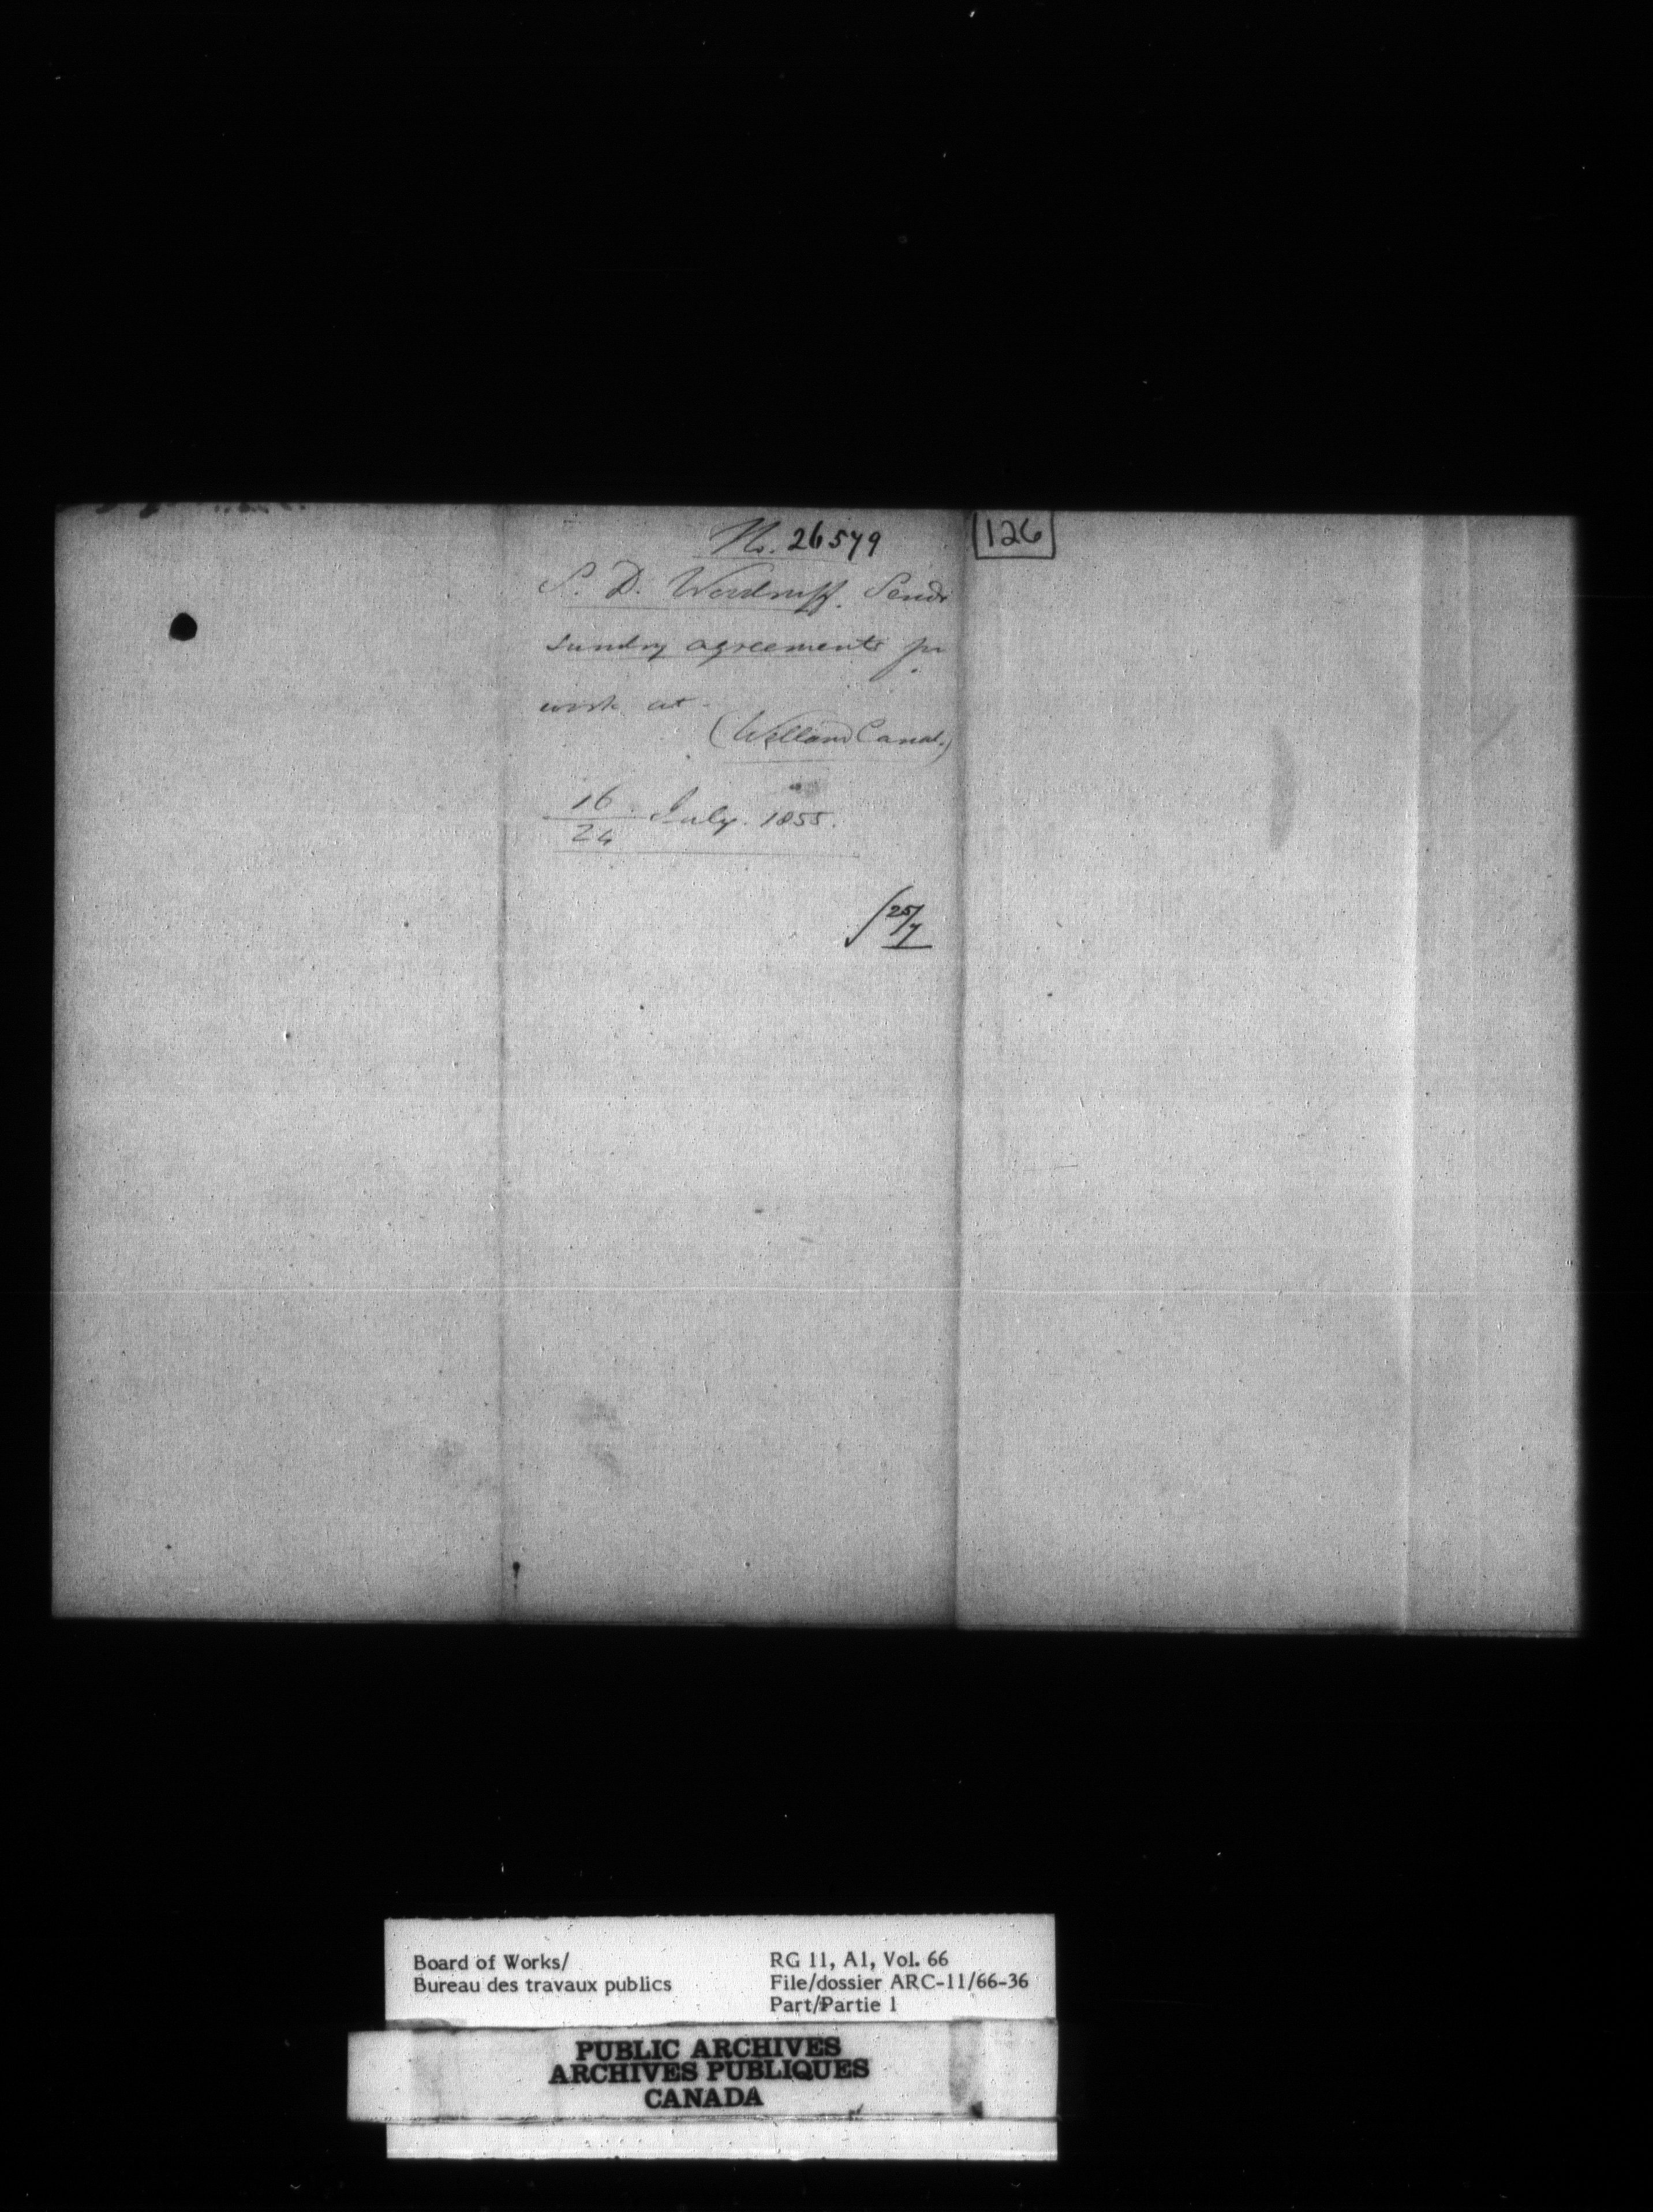 No. 26579
126
S. D. Woodruff. Sends
sundry agreements for
work at
(Welland Canal.)
16
24 July. 1855.
25/7
Board of Works/
Bureau des travaux publics
RG 11, A1, Vol. 66
File/dossier ARC-11/66-36
Part/Partie 1
PUBLIC ARCHIVES
ARCHIVES PUBLIQUES
CANADA